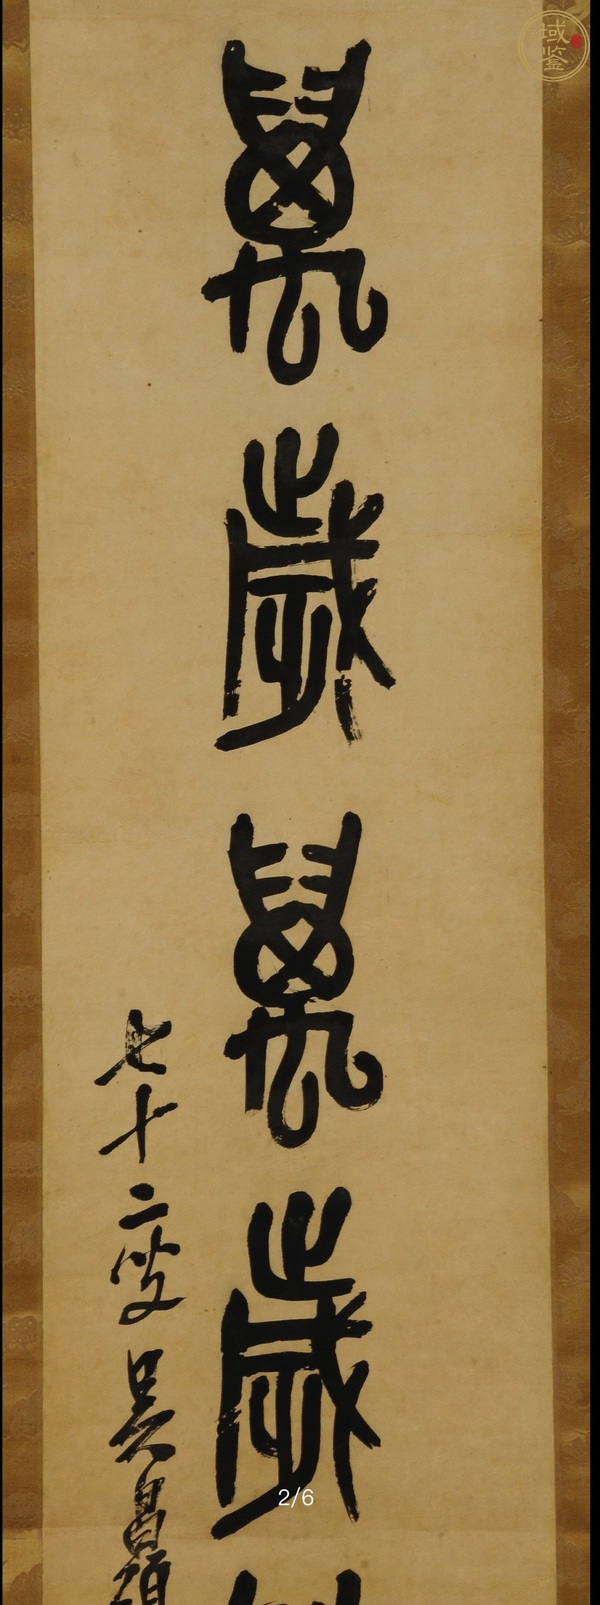 萬歲萬歲
七十二叟吳昌碩
域鉴
2/6